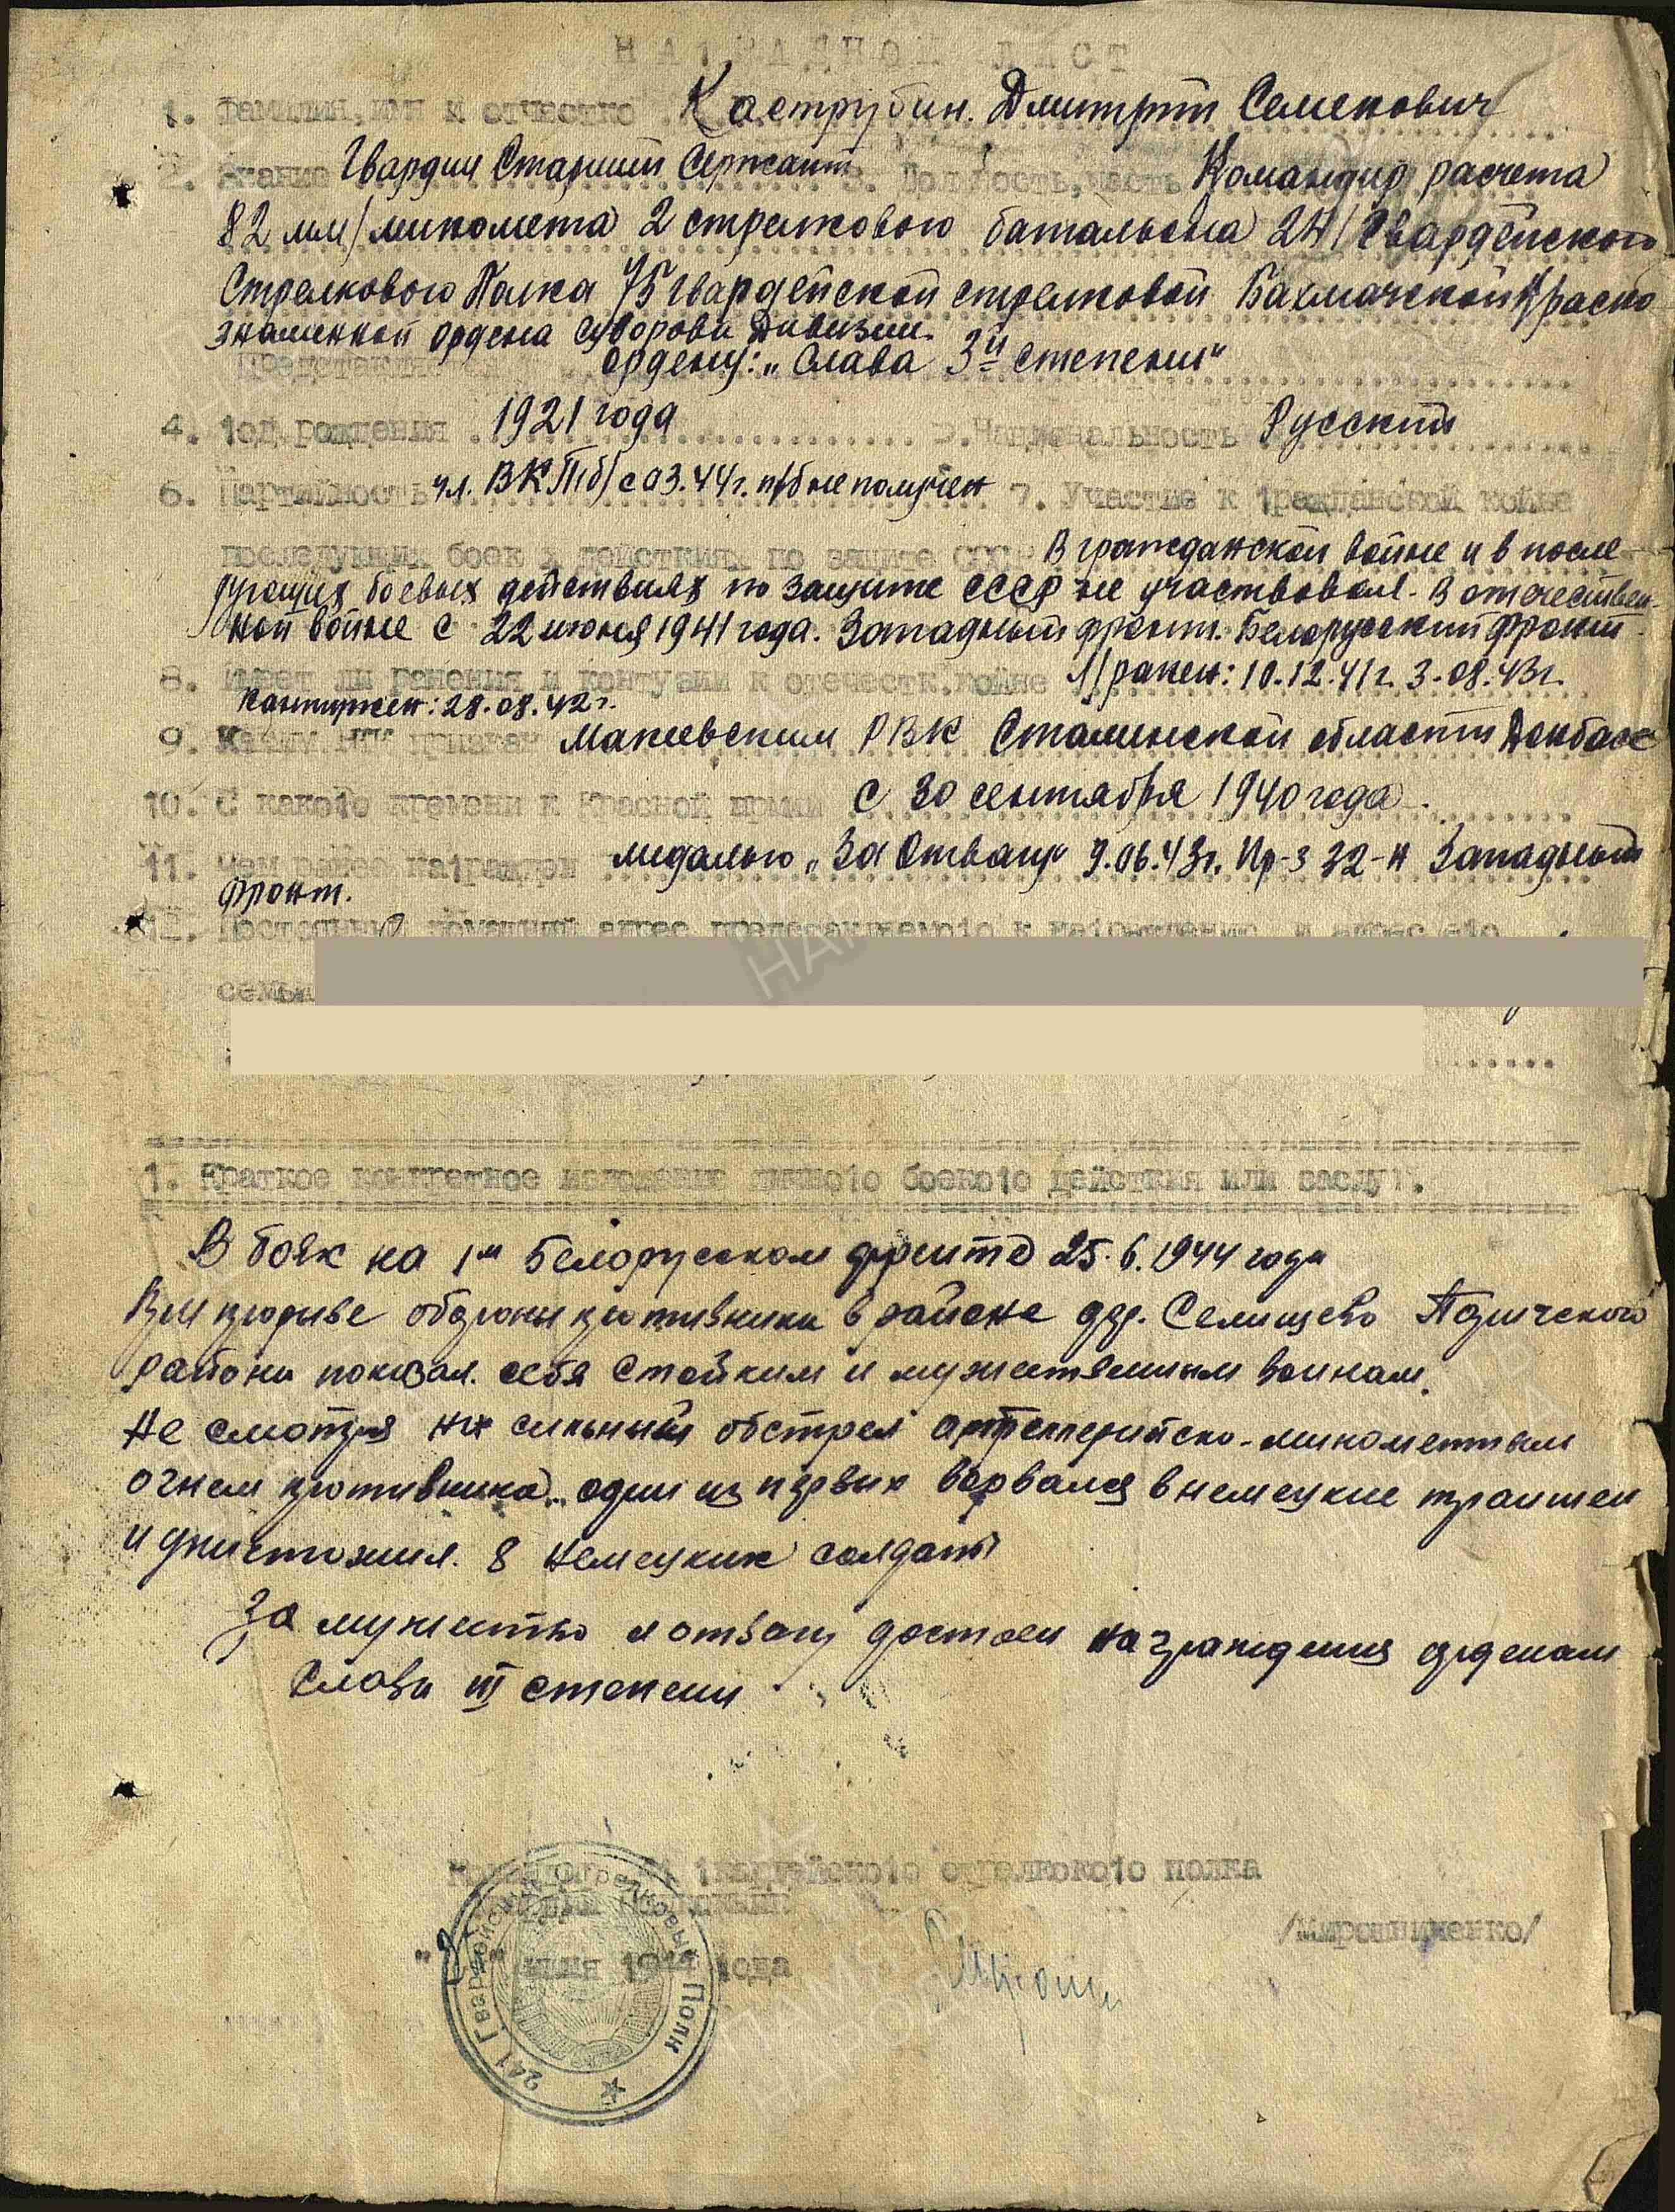 НАГРАДНОЙ ЛИСТ
1. Фамилия, имя и отчество Каструбин. Дмитрий Семенович
2. Звание Гвардии Старший Сержант 3. Должность, часть Командир расчета
82 мм/миномета 2 стрелкового батальона 241 Гвардейского
Стрелкового Полка 75 гвардейской стрелковой Бахмачской Красно
знаменной ордена Суворова дивизии.
Представляется ордену: „Слава 3й степени"
4. Год рождения 1921 года 5. Национальность Русский
6. Партийность чл. ВКП(б) с 03.44г. п/б не получен 7. Участие в гражданской войне
последующих боев. действиях по защите СССР В гражданской войне и в после-
дующих боевых действиях по защите СССР не участвовал. В отечествен-
ной войне с 22 июня 1941 года. Западный фронт. Белорусский фронт.
8. Имеет ли ранения и контузии в отечеств. войне Л/ранен: 10.12.41г. 3.08.43г.
Контужен: 28.08.42г.
9. Каким РВК призван Макеевским РВК Сталинской области Донбасс
10. С какого времени в Красной армии С 30 сентября 1940 года.
11. Чем ранее награжден медалью „За Отвагу" 9.06.43г. Пр-з 32-н Западный
фронт.
12. Постоянный домашний адрес представляемого к награждению и адрес его
семьи
1. Краткое конкретное изложение личного боевого действия или заслуг.
В боях на 1м Белорусском фронте 25.6.1944 года
При прорыве обороны противника в районе дер. Селищево Паричского
района показал себя стойким и мужественным воином.
Не смотря на сильный обстрел артеллерийско-минометным
огнем противника.. один из первых ворвался в немецкие траншеи
и уничтожил. 8 немецких солдаты
За мужество и отвагу достоен награждения орденом
Слава III степени
Командир 241 гвардейского стрелкового полка
гвардии
/Мирошниченко/
1944 года
241 Гвардейский Стрелковый Полк
ПАМЯТЬ
НАРОДА